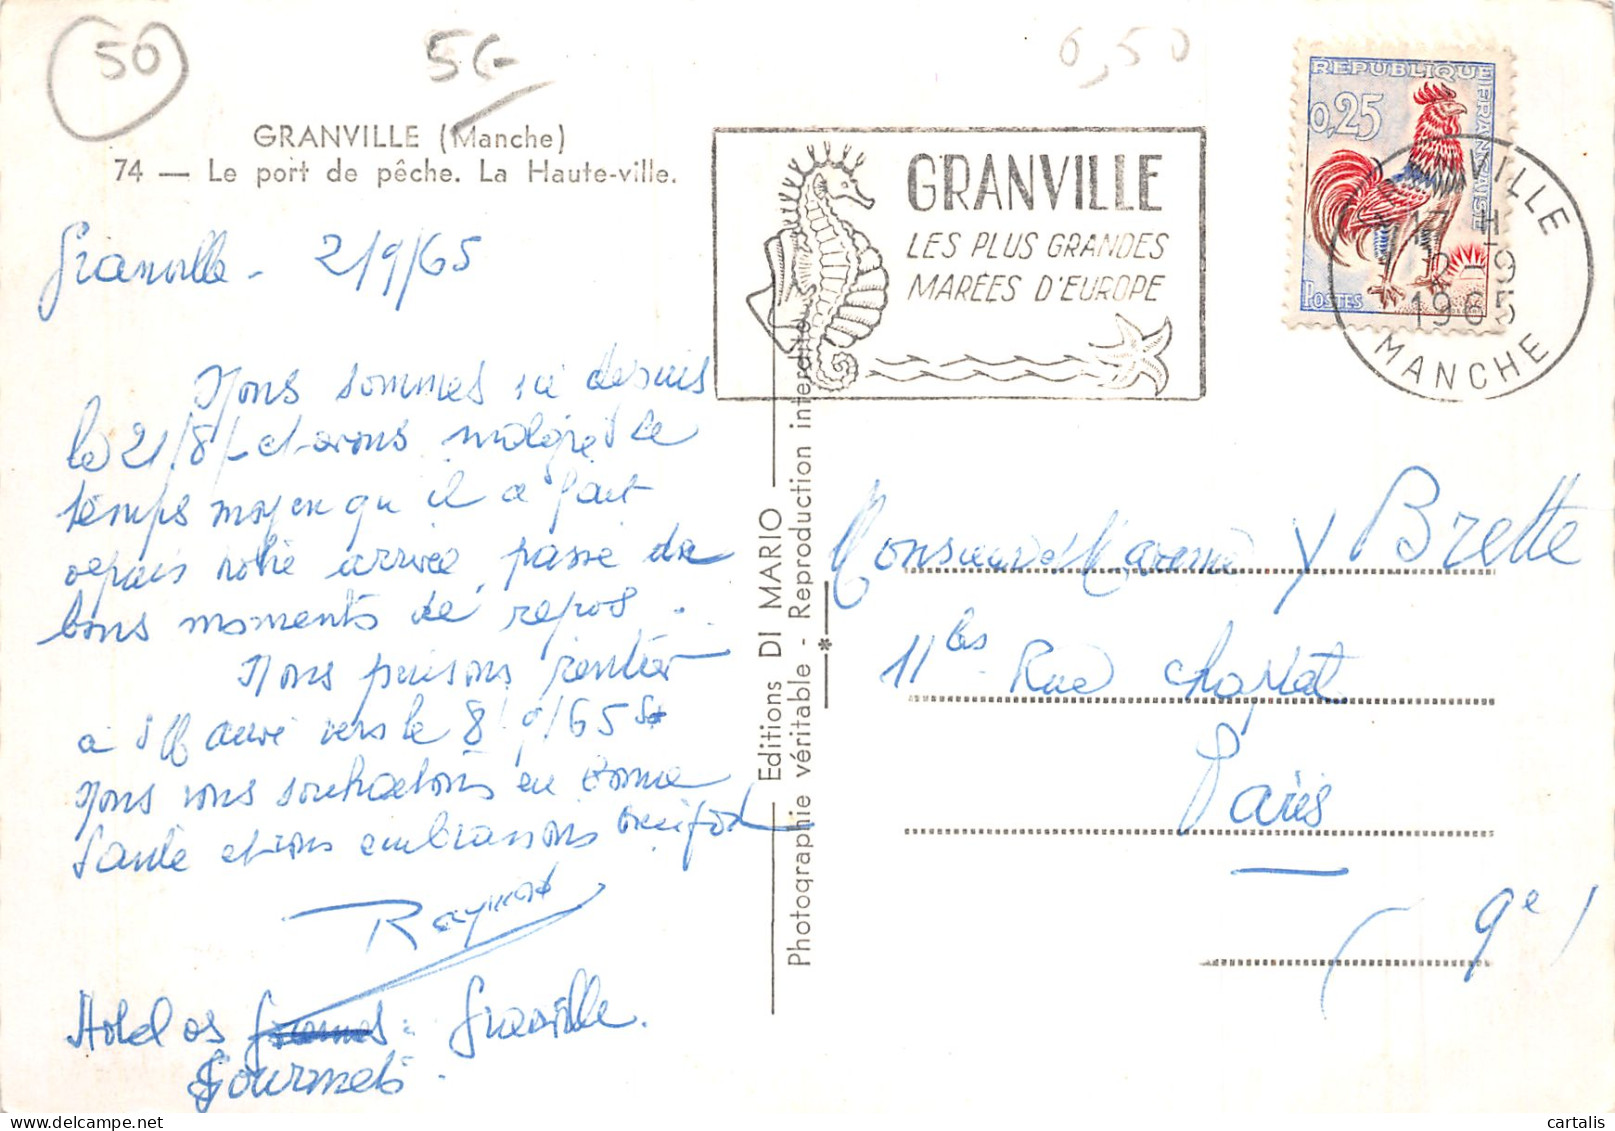 50
56-
6,50
GRANVILLE (Manche)
74 — Le port de pêche. La Haute-ville.
Granville - 2/9/65
Nous sommes ici depuis
le 21/8/- et avons malgré le
temps moyen qu'il a fait
depuis notre arrivée, passé de
bons moments de repos.
Nous pensons rentrer
à vers le 8/9/65 et
Nous vous souhaitons en bonne
santé et vous embrassons
Raymond
Hotel des Granville.
Gourmets.
Editions DI MARIO
Photographie véritable - Reproduction interdite
GRANVILLE
LES PLUS GRANDES
MARÉES D'EUROPE
REPUBLIQUE FRANÇAISE
0,25
POSTES
VILLE
17 H
2-9
1965
MANCHE
Monsieur et Madame Y Brette
11 bis Rue Chaptal
Paris
(9e)
© cartalis